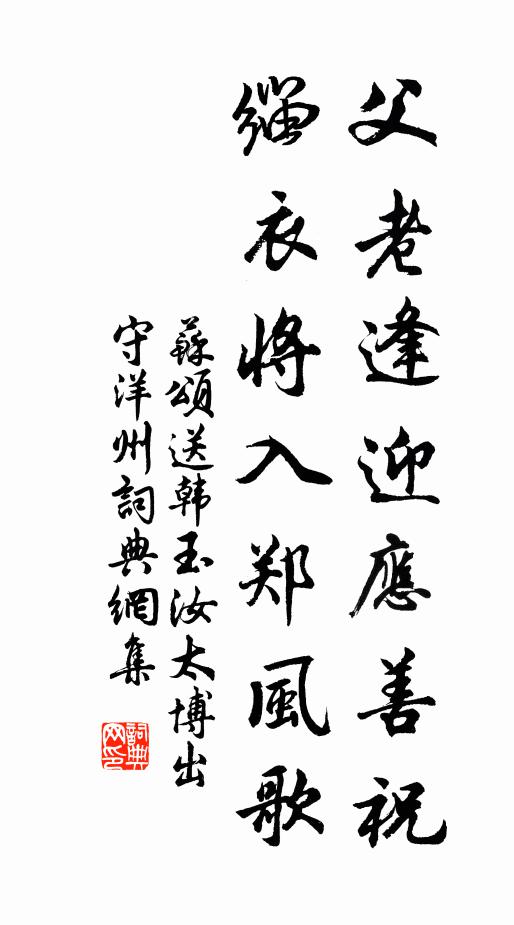 父老逢迎應善祝
緇衣將入郑風歌
蘇頌送韩玉汝太博出
守洋州詞典網集
詞典网印